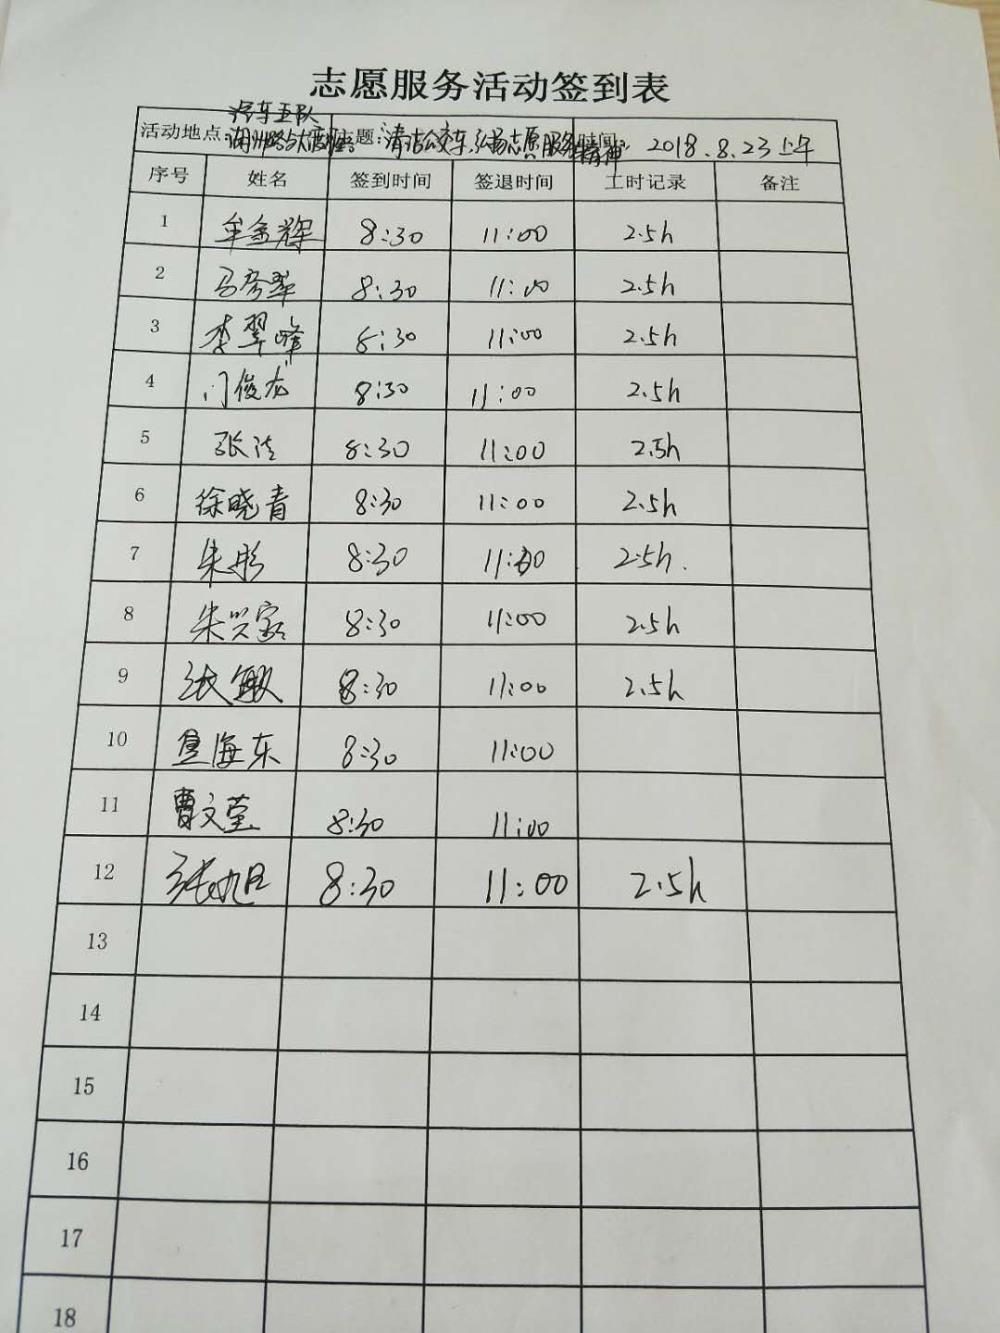 志愿服务活动签到表
汽车五队
活动地点: 主题: 清洁公交车,弘扬志愿服务精神 时间: 2018.8.23上午
序号 姓名 签到时间 签退时间 工时记录 备注
1 牟金辉 8:30 11:00 2.5h
2 马彦翠 8:30 11:00 2.5h
3 李翠峰 8:30 11:00 2.5h
4 门俊龙 8:30 11:00 2.5h
5 张洁 8:30 11:00 2.5h
6 徐晓青 8:30 11:00 2.5h
7 朱彤 8:30 11:00 2.5h.
8 朱兴家 8:30 11:00 2.5h
9 张敏 8:30 11:00 2.5h
10 海东 8:30 11:00
11 曹文莹 8:30 11:00
12 张旭 8:30 11:00 2.5h
13
14
15
16
17
18